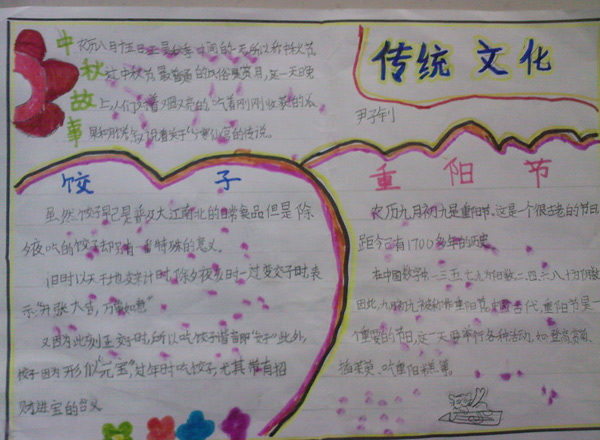 中秋故事
农历八月十五日正是秋季中间的一天所以称中秋节
在中秋节最普遍的风俗是赏月,每一天晚
上,人们对着又圆又亮的 吃着刚刚收获的瓜
果和月饼 说着关于 的传说。
传统 文化
尹子钊
饺子
虽然饺子早已是 大江南北的日常食品但是除
夕夜吃的饺子却另有一番特殊的意义。
旧时以天干地支来计时,除夕夜亥时一过交子时表
示"开张大吉,万事如意"
又因为此刻正交子时,所以吃饺子谐音即"交子"此外,
饺子因为形似"元宝",过年时吃饺子,尤其带有招
财进宝的含义
重阳节
农历九月初九是重阳节,这是一个很古老的节日
距今已有1700多年的历史
在中国数字 一三五七九为阳数,二四六八十为阴数
因此,九月初九被称作重阳节, 古代,重阳节是一
个重要的节日,这一天要举行各种活动,如登高、赏菊、
插茱萸、吃重阳糕等。